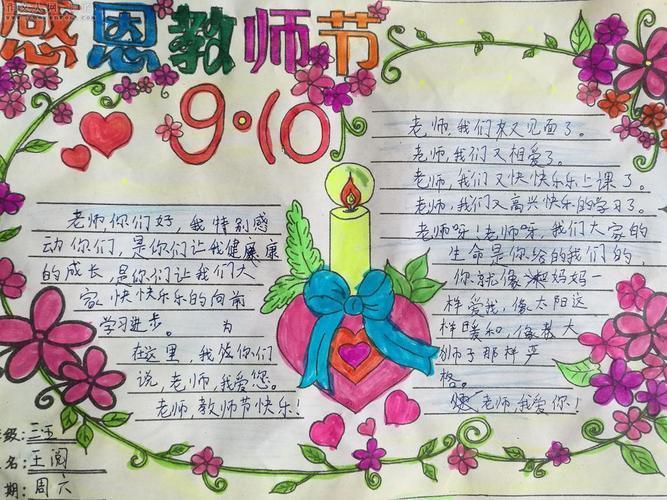 感恩教师节
9·10
老师,你们好,我特别感
动你们,是你们让我健康康
的成长,是你们让我们大
家快快乐乐的向前
学习进步。 为
在这里,我
你们
说,老师,我爱您。
老师,教师节快乐!
老师,我们又见面了。
老师,我们又相爱了。
老师,我们又快快乐乐上课了。
老师,我们又高兴快乐的学习了。
老师呀!老师呀,我们大家的
生命是你给的我们的,
你就像妈妈一
样爱我,像太阳这
样暖和,像教大
狮子那样严
格。
老师,我爱你!
级:三五
名:王阅
期:周六